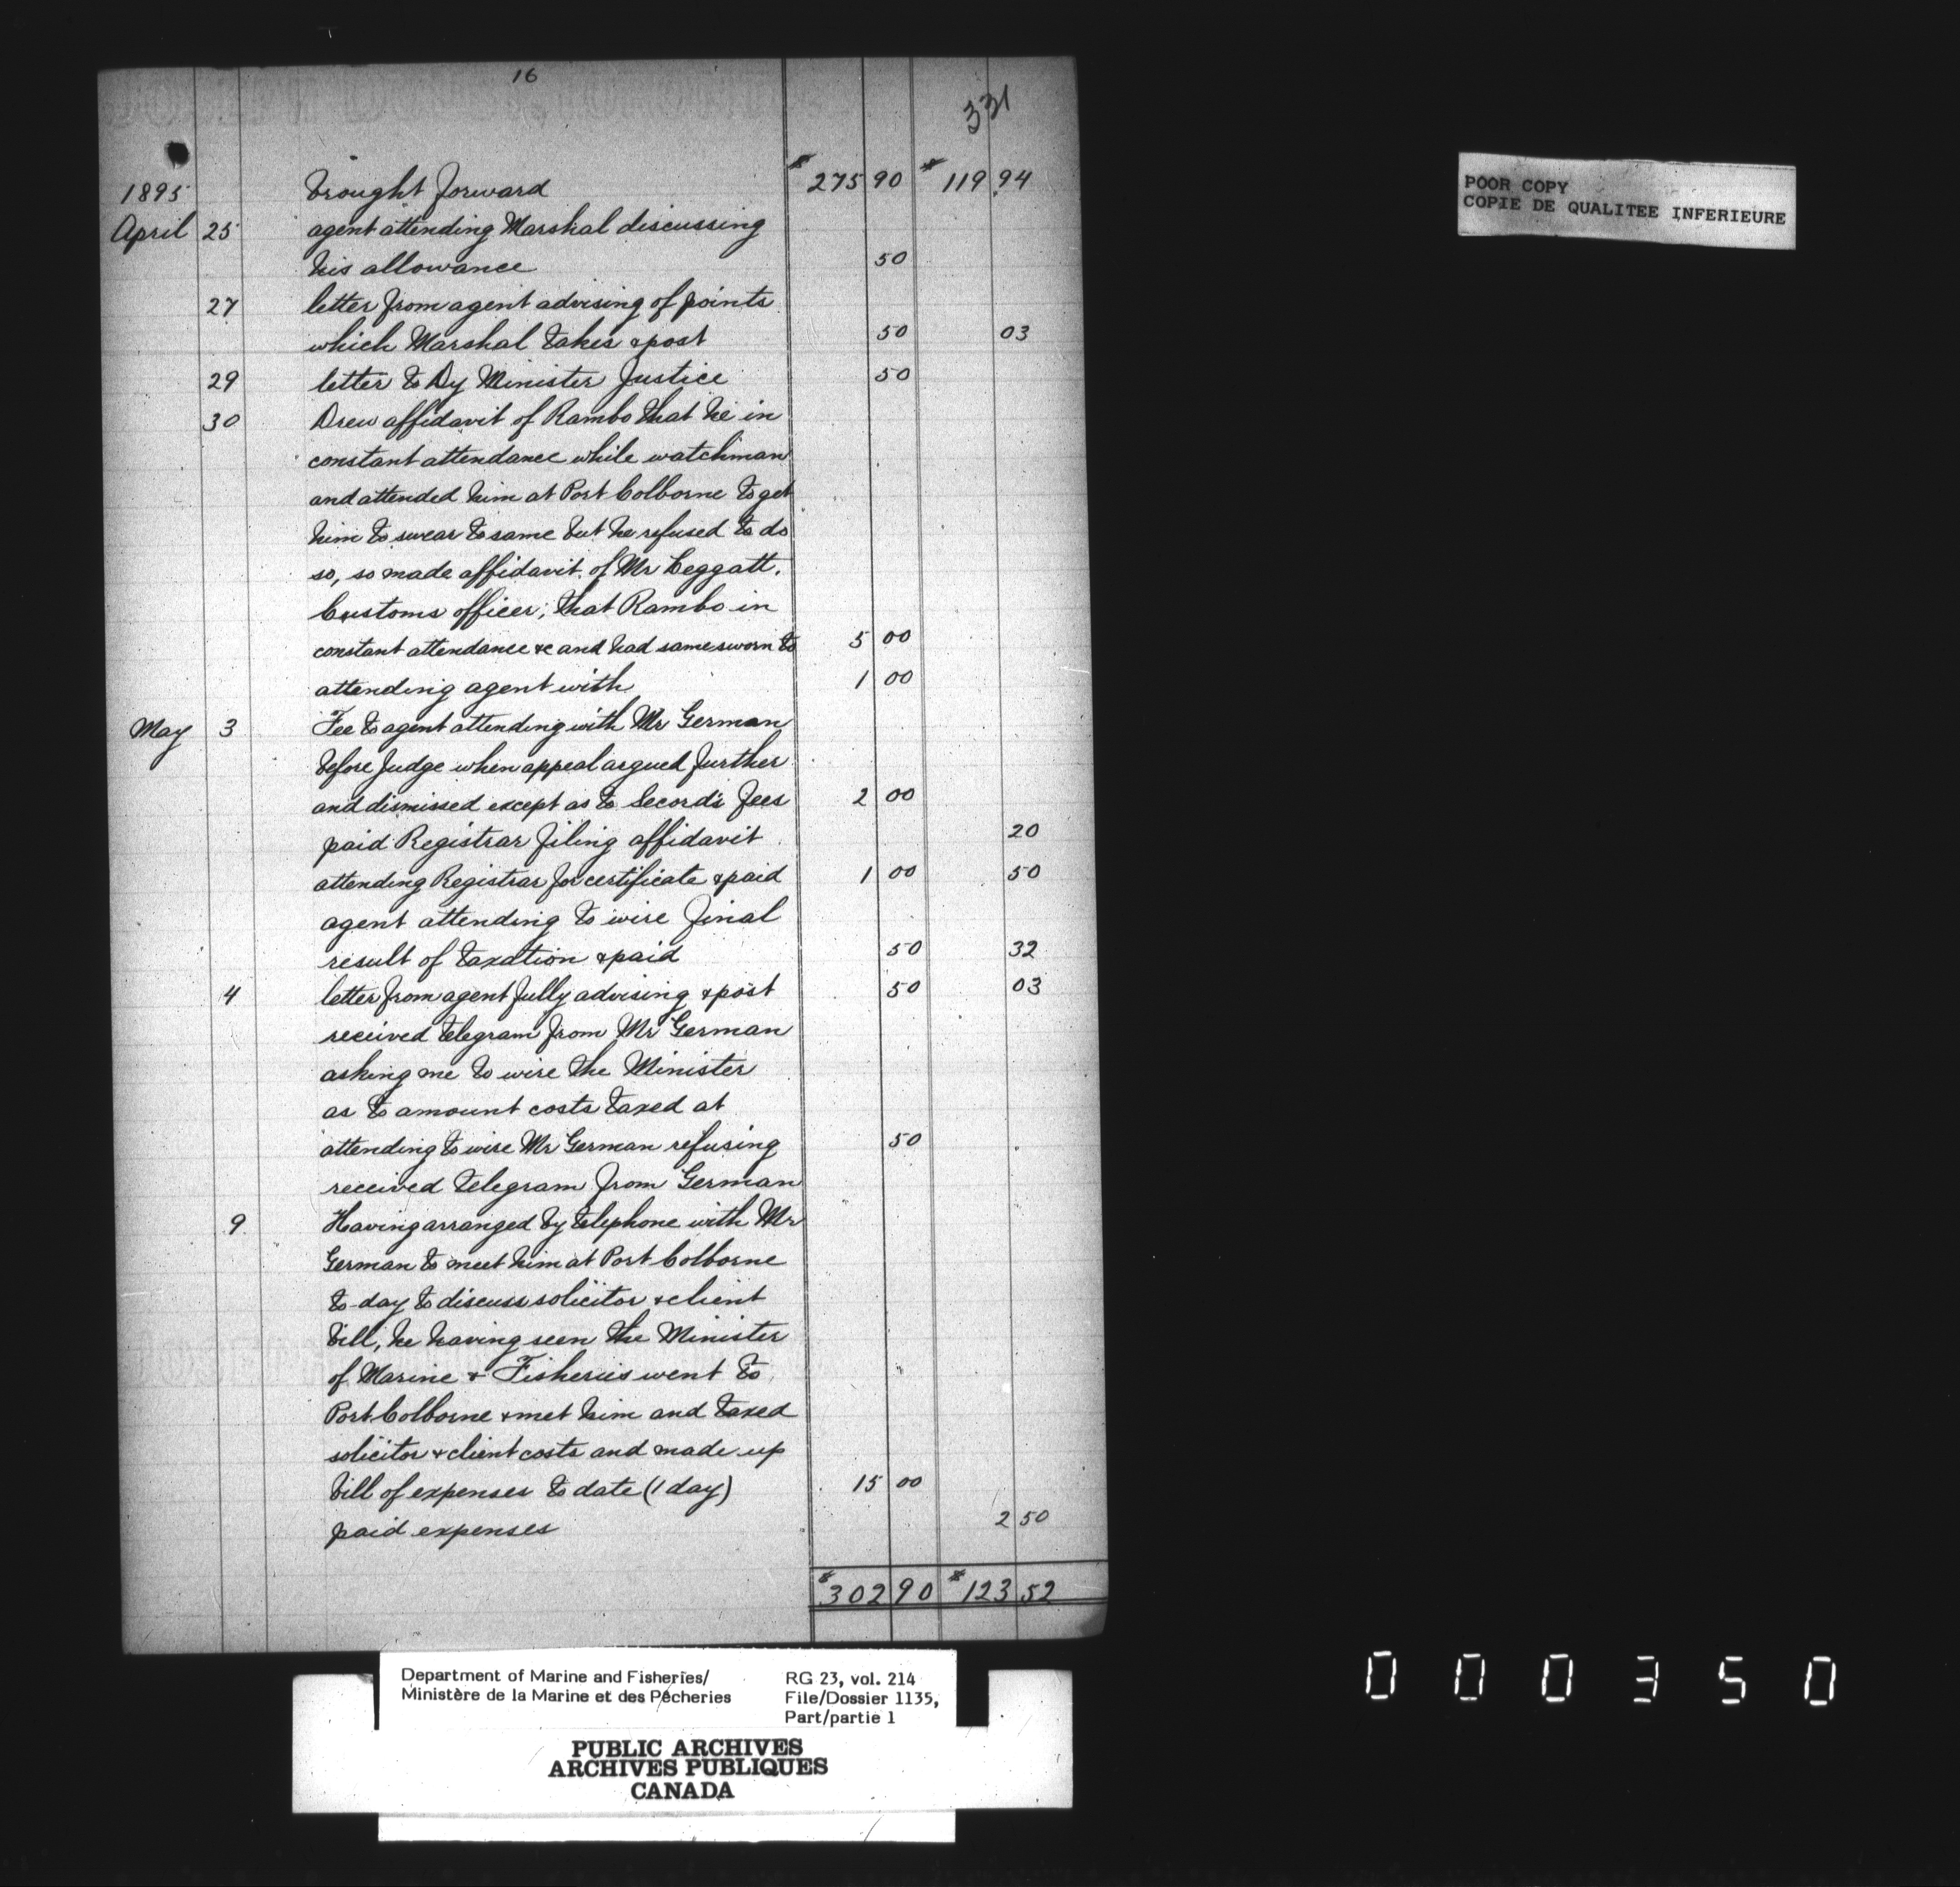 16
331
1895 brought forward $275 90 $119 94
April 25 agent attending Marshal discussing
his allowance 50
27 letter from agent advising of points
which Marshal takes & post 50 03
29 letter to Dy Minister Justice 50
30 Drew affidavit of Rambo that he in
constant attendance while watchman
and attended him at Port Colborne to get
him to swear to same but he refused to do
so, so made affidavit of Mr Leggatt,
Customs officer, that Rambo in
constant attendance &c and had same sworn to 5 00
attending agent with 1 00
May 3 Fee to agent attending with Mr German
before Judge when appeal argued further
and dismissed except as to Secord's fees 2 00
paid Registrar filing affidavit 20
attending Registrar for certificate & paid 1 00 50
agent attending to wire final
result of taxation & paid 50 32
4 letter from agent fully advising & post 50 03
received telegram from Mr German
asking me to wire the Minister
as to amount costs taxed at
attending to wire Mr German refusing 50
received telegram from German
9 Having arranged by telephone with Mr
German to meet him at Port Colborne
to-day to discuss solicitor & client
bill, he having seen the Minister
of Marine & Fisheries went to
Port Colborne & met him and taxed
solicitor & client costs and made up
bill of expenses to date (1 day) 15 00
paid expenses 2 50
$302 90 $123 52
POOR COPY
COPIE DE QUALITEE INFERIEURE
Department of Marine and Fisheries/ RG 23, vol. 214
Ministère de la Marine et des Pêcheries File/Dossier 1135,
Part/partie 1
PUBLIC ARCHIVES
ARCHIVES PUBLIQUES
CANADA
000350